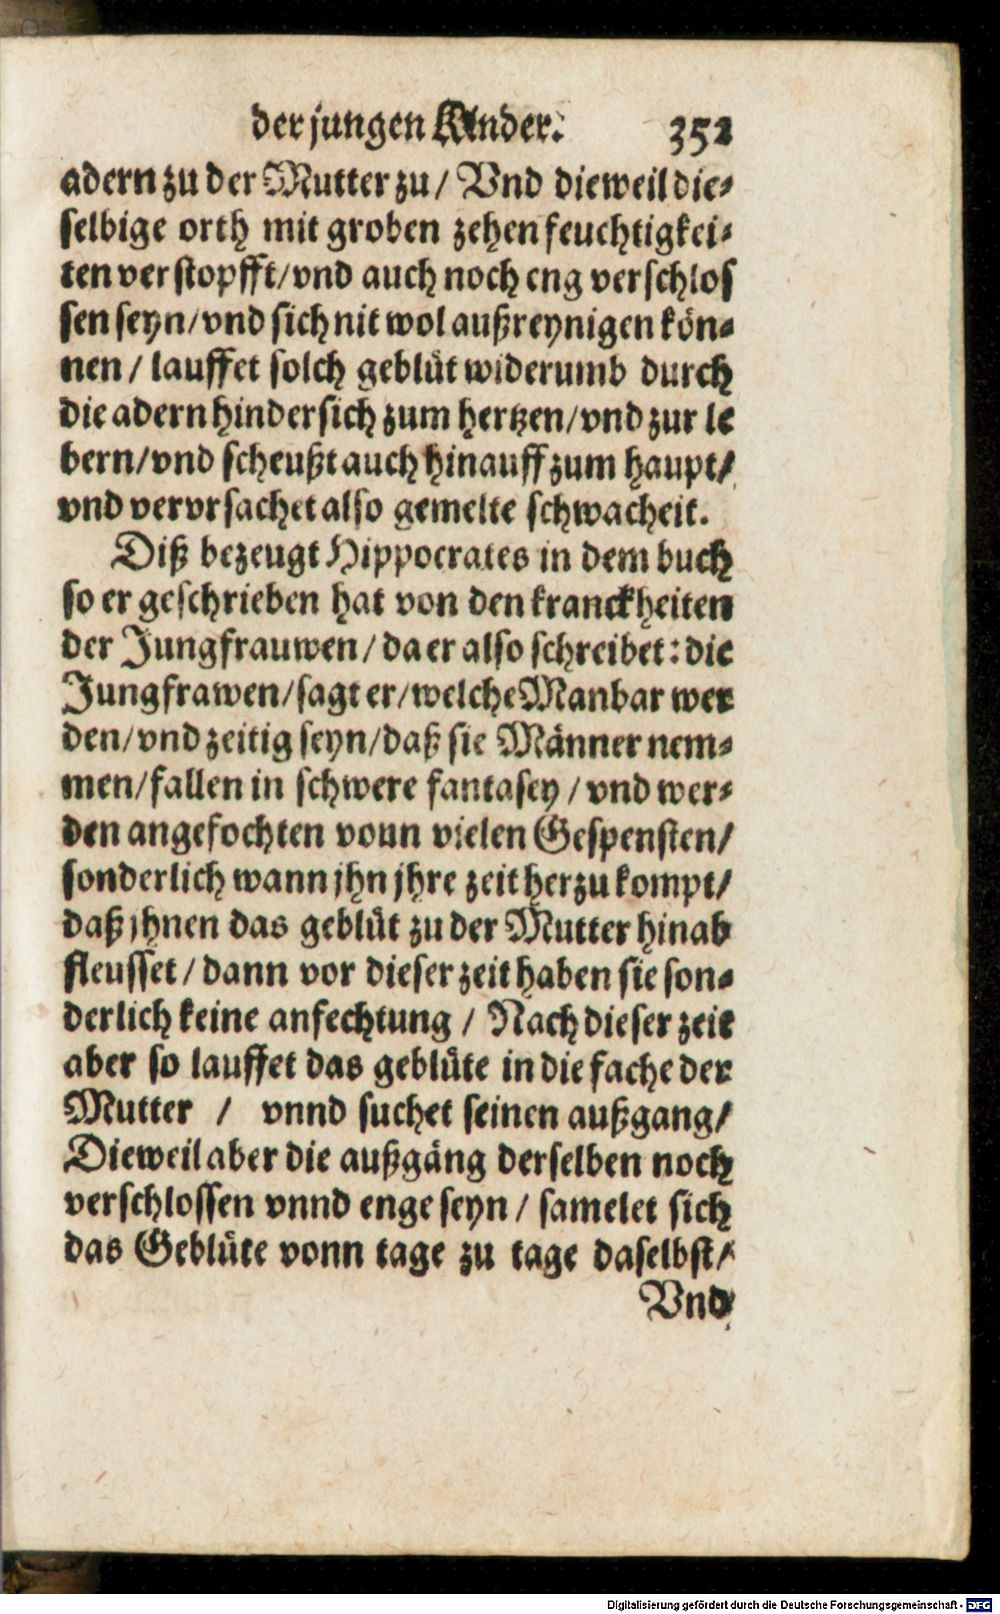 der jungen Kinder. 352
adern zu der Mutter zu / Vnd dieweil die-
selbige orth mit groben zehen feuchtigkei-
ten verstopfft / vnd auch noch eng verschlos
sen seyn / vnd sich nit wol außreynigen kön-
nen / lauffet solch geblüt widerumb durch
die adern hindersich zum hertzen / vnd zur le
bern / vnd scheußt auch hinauff zum haupt /
vnd vervrsachet also gemelte schwacheit.
Diß bezeugt Hippocrates in dem buch
so er geschrieben hat von den kranckheiten
der Jungfrauwen / da er also schreibet: die
Jungfrawen / sagt er / welche Manbar wer
den / vnd zeitig seyn / daß sie Männer nem-
men / fallen in schwere fantasey / vnd wer-
den angefochten vonn vielen Gespensten /
sonderlich wann jhn jhre zeit herzu kompt /
daß jhnen das geblüt zu der Mutter hinab
fleusset / dann vor dieser zeit haben sie son-
derlich keine anfechtung / Nach dieser zeit
aber so lauffet das geblüte in die fache der
Mutter / vnnd suchet seinen außgang /
Dieweil aber die außgäng derselben noch
verschlossen vnnd enge seyn / samelet sich
das Geblüte vonn tage zu tage daselbst /
Vnd
Digitalisierung gefördert durch die Deutsche Forschungsgemeinschaft - DFG